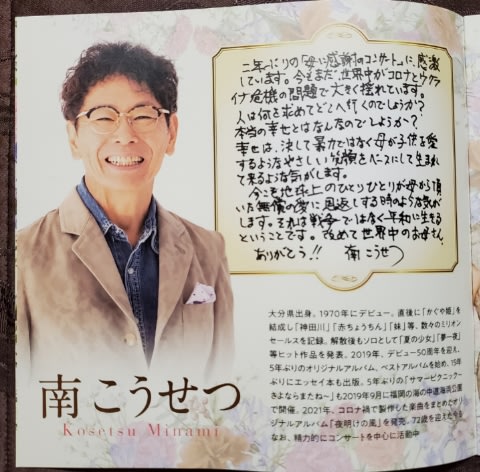 二年ぶりの「母に感謝のコンサート」に、感激
しています。今もまだ、世界中がコロナとウクラ
イナ危機の問題で大きく揺れています。
人は何を求めてどこへ行くのでしょうか?
本当の幸せとはなんなのでしょうか?
幸せは、決して暴力ではなく母が子供を愛
するようなやさしい笑顔をベースにして生まれ
て来るような気がします。
今こそ地球上のひとりひとりが母から頂
いた無償の愛に恩返しする時のような気が
します。それは戦争ではなく平和に生きる
ということです。改めて世界中のお母さん、
ありがとう!! 南 こうせつ
大分県出身。1970年にデビュー。直後に「かぐや姫」を
結成し「神田川」「赤ちょうちん」「妹」等、数々のミリオン
セールスを記録。解散後もソロとして「夏の少女」「夢一夜」
等ヒット作品を発表。2019年、デビュー50周年を迎え、
5年ぶりのオリジナルアルバム、ベストアルバムを始め、15年
ぶりにエッセイ本も出版。5年ぶりの「サマーピクニック〜
さよならまたね〜」も2019年9月に福岡の海の中道海浜公園
で開催。2021年、コロナ禍で製作した楽曲をまとめたオリ
ジナルアルバム「夜明けの風」を発売。72歳を迎えた今も
なお、精力的にコンサートを中心に活動中
南 こうせつ
Kosetsu Minami